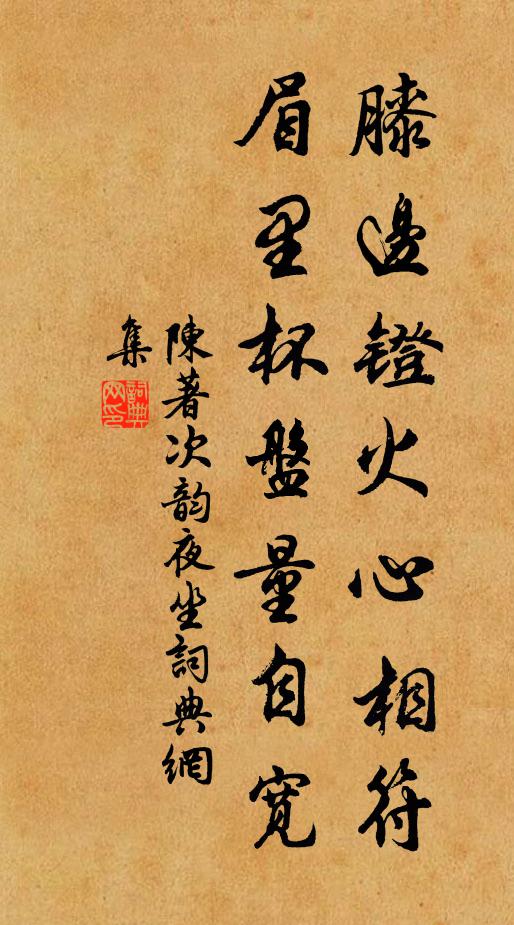 膝邊鐙火心相符
眉里杯盤量自寬
陳著次韵夜坐詞典網
集
詞典
网印